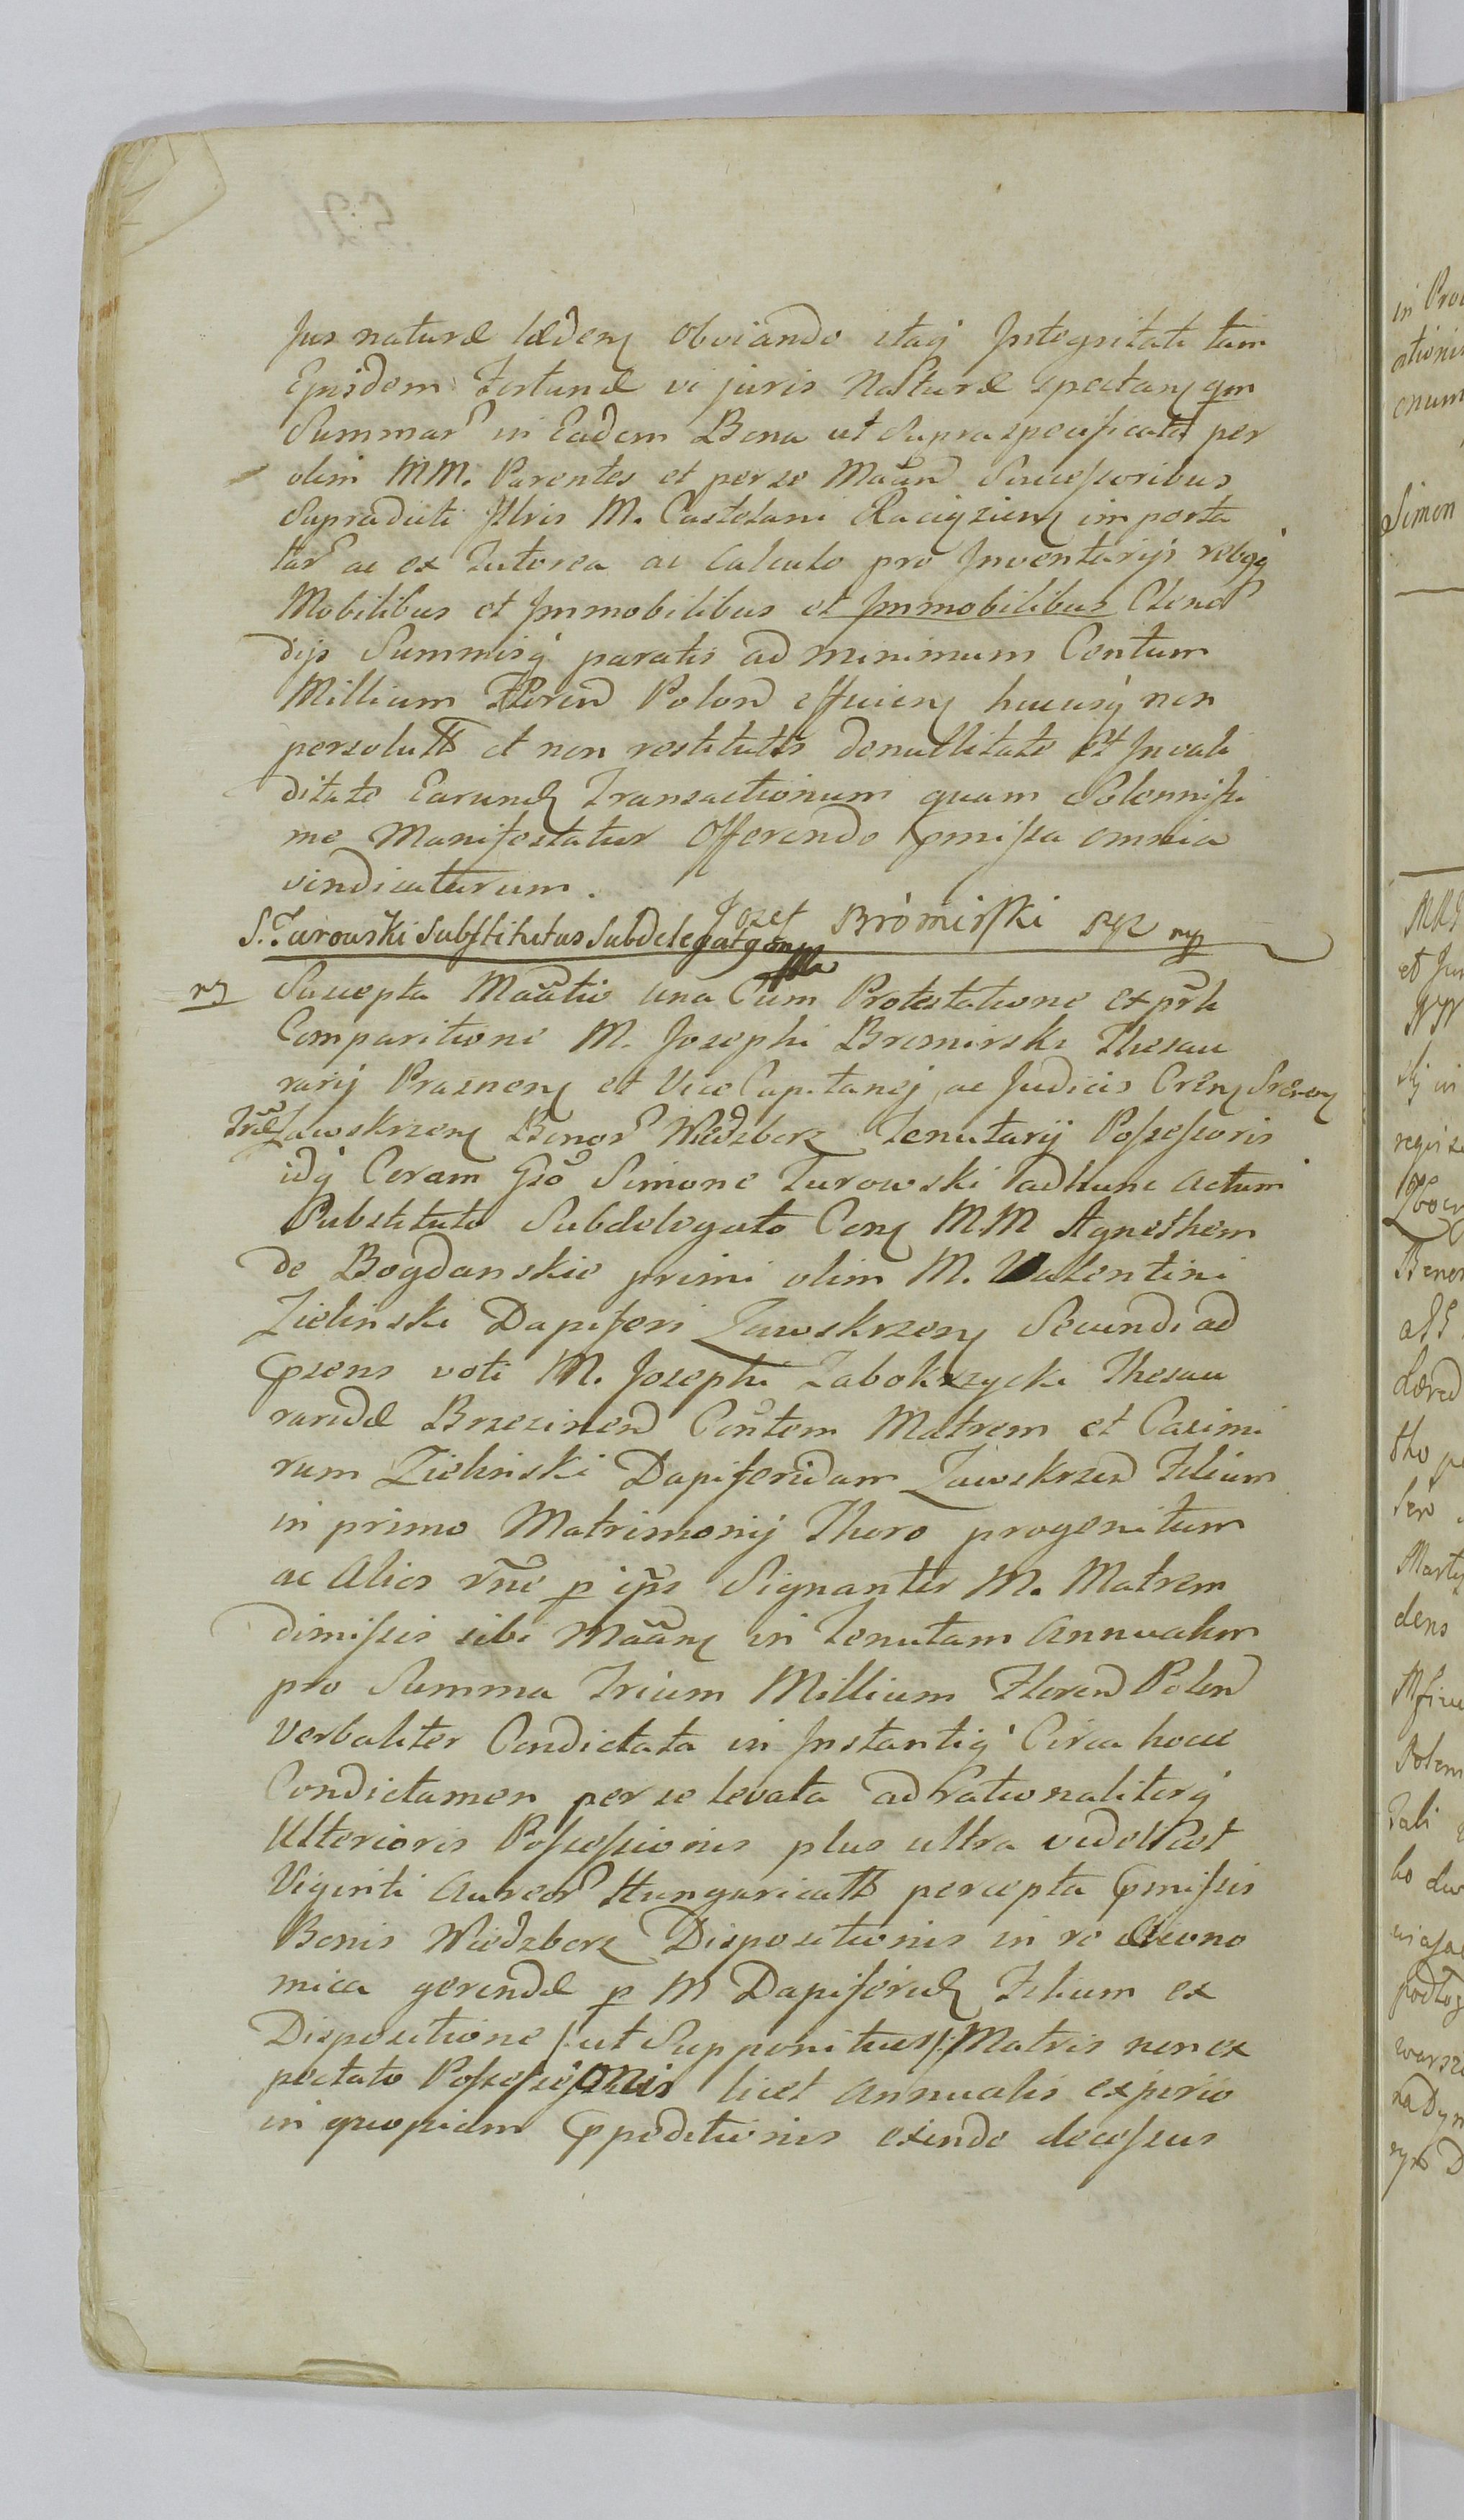 Jus naturæ lædenꝫ Obviando itaq Integritati tam
Ejusdem Fortunæ vi juris Naturæ spectanꝫ qm
Summar in Eadem Bona ut Supraspecificatꝭ per
olim MM. Parentes et per se Maãn Successoribus
Supradicti Illris M. Castelani Raciązienꝫ importa
tar ac ex Tutorea ac Calculo pro Inventarijs rebqꝫ
Mobilibus et Immobilibus et Immobilibus Cleno
dijs Summisq paratis ad minimum Centum
Millium Floren Polon efficienꝫ hucusq non
persolutis et non restitutis denullitate et Invali
ditate Earundꝫ Transactionum quam Solennissi
me Manifestatur Offerendo pmissa omnia
vindicaturum.
Jozef Bromirski SP mp
S. Turowski Substitutus Subdelegatq mp
Suscepta Maãtio una Cum Protestatione ex prti
Comparitione M. Josephi Bromirski Thesau
rarij Prasnenꝫ et Vice Capitanej ac Judicis Crenꝫ Srenꝫ
Zawskrzenꝫ Bonor Wiedzborz Tenutarij Possessoris
idq Coram Gso Simone Turowski ad hunc Actum
Substituto Subdelegato Conꝫ MM Agnethem
de Bogdanskie primi olim M. Valentini
Zielinski Dapiferi Zawskrzenꝫ Secundi ad
psens voti M. Josephi Zabokrzycki Thesau
raridæ Brzezinen Contem Matrem et Casimi
rum Zielinski Dapiferidam Zawskrzen Filium
in primo Matrimonij Thoro progenitum
ac Alios rne p ips Signanter M. Matrem
dimissis sibi Maãnꝫ in Tenutam Annualem
pro Summa Trium Millium Floren Polon
Verbaliter Condictata in Instantiq Circa hocce
Condictamen per se levata adrationaliterq
Ulterioris Possessionis plus ultra videlicet
Viginti Aureor Hungaricalis percepta pmissis
Bonis Wiedzborz Dispositionis in re Oecono
mica gerendæ p M Dapiferidꝫ Filium ex
Dispositione /:ut Supponitur:/ Matris non ex
pectato Possessionis licet Annualis expirio
in quopiam Expeditionis exinde decessus